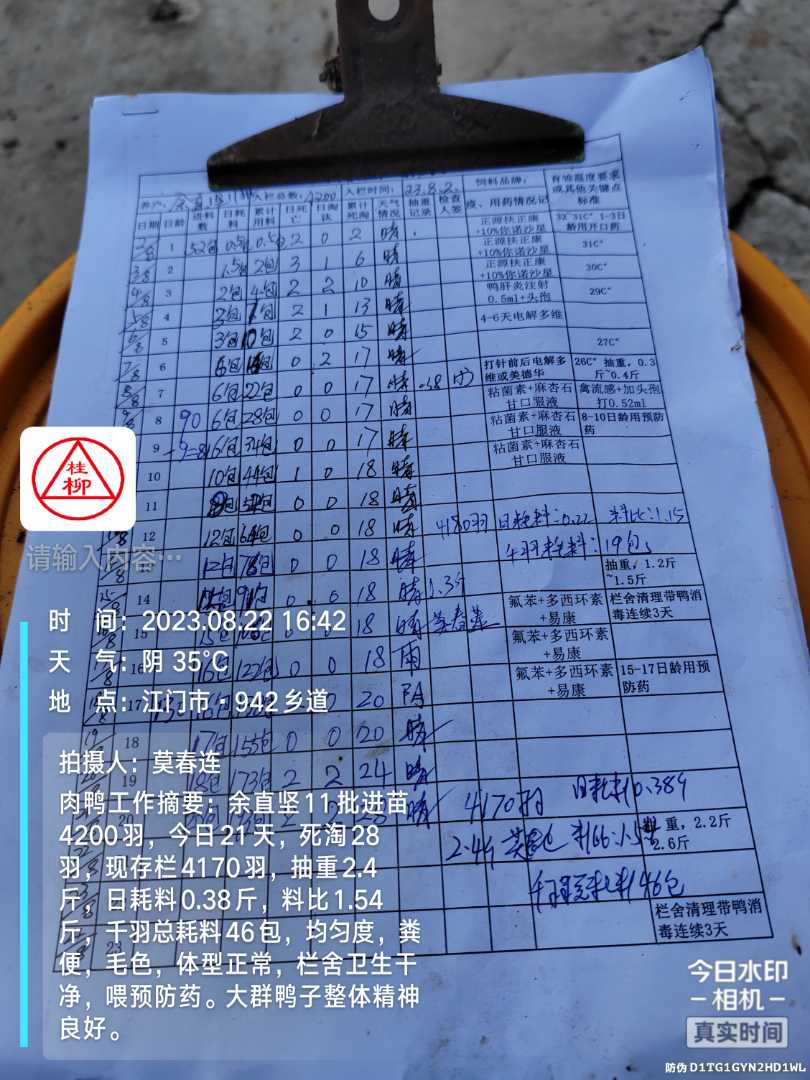 养户: 入栏总数: 4200 入栏时间: 23.8.2. 饲料品牌: 育雏温度要求或其他关键点标准
日期 日龄 进料数 日耗料 累计用料 日死亡 日淘汰 累计死淘 天气情况 抽重记录 检查人签 疫、用药情况记
2/8 1 52包 0.5包 0.5包 2 0 2 晴 正源扶正康+10%你诺沙星 32 31C° 1-3日龄用开口药
3/8 2 1.5包 2包 3 1 6 晴 正源扶正康+10%你诺沙星 31C°
4/8 3 2包 4包 2 2 10 晴 正源扶正康+10%你诺沙星 30C°
5/8 4 3包 2 1 13 晴 鸭肝炎注射0.5ml+头孢 29C°
6/8 5 3包 10包 2 0 15 晴 4-6天电解多维
7/8 6 6包 0 2 17 晴 27C°
8/8 7 6包 22包 0 0 17 晴 打针前后电解多维或美德华 26C° 抽重，0.3斤~0.4斤
9/8 8 90 6包 28包 0 0 17 晴 粘菌素+麻杏石甘口服液 禽流感+加头孢打0.52ml
9 6包 34包 0 0 17 晴 粘菌素+麻杏石甘口服液 8-10日龄用预防药
10 10包 44包 1 0 18 晴 粘菌素+麻杏石甘口服液
11 0 0 18 晴
12 12包 64包 0 0 18 晴 4180羽 日耗料:0.22 料比:1.15
13 12包 76包 0 0 18 晴 千羽耗料:19包
14 0 0 18 晴 1.3斤 抽重，1.2斤~1.5斤
15 15包 0 0 18 晴 莫春莲 氟苯+多西环素+易康 栏舍清理带鸭消毒连续3天
16 16包 122包 0 0 18 雨 氟苯+多西环素+易康
17 0 20 阴 氟苯+多西环素+易康 15-17日龄用预防药
18 17包 155包 0 0 20 晴
19 18包 173包 2 2 24 晴
20 28 晴 4170羽 日耗料0.38斤
2.4斤 料比1.5 重，2.2斤
2.6斤
千羽总耗料46包
23 栏舍清理带鸭消毒连续3天
桂柳
请输入内容…
时 间: 2023.08.22 16:42
天 气: 阴 35℃
地 点: 江门市·942乡道
拍摄人: 莫春连
肉鸭工作摘要: 余直坚11批进苗
4200羽，今日21天，死淘28
羽，现存栏4170羽，抽重2.4
斤，日耗料0.38斤，料比1.54
斤，千羽总耗料46包，均匀度，粪
便，毛色，体型正常，栏舍卫生干
净，喂预防药。大群鸭子整体精神
良好。
今日水印
-相机-
真实时间
防伪 D1TG1GYN2HD1WL